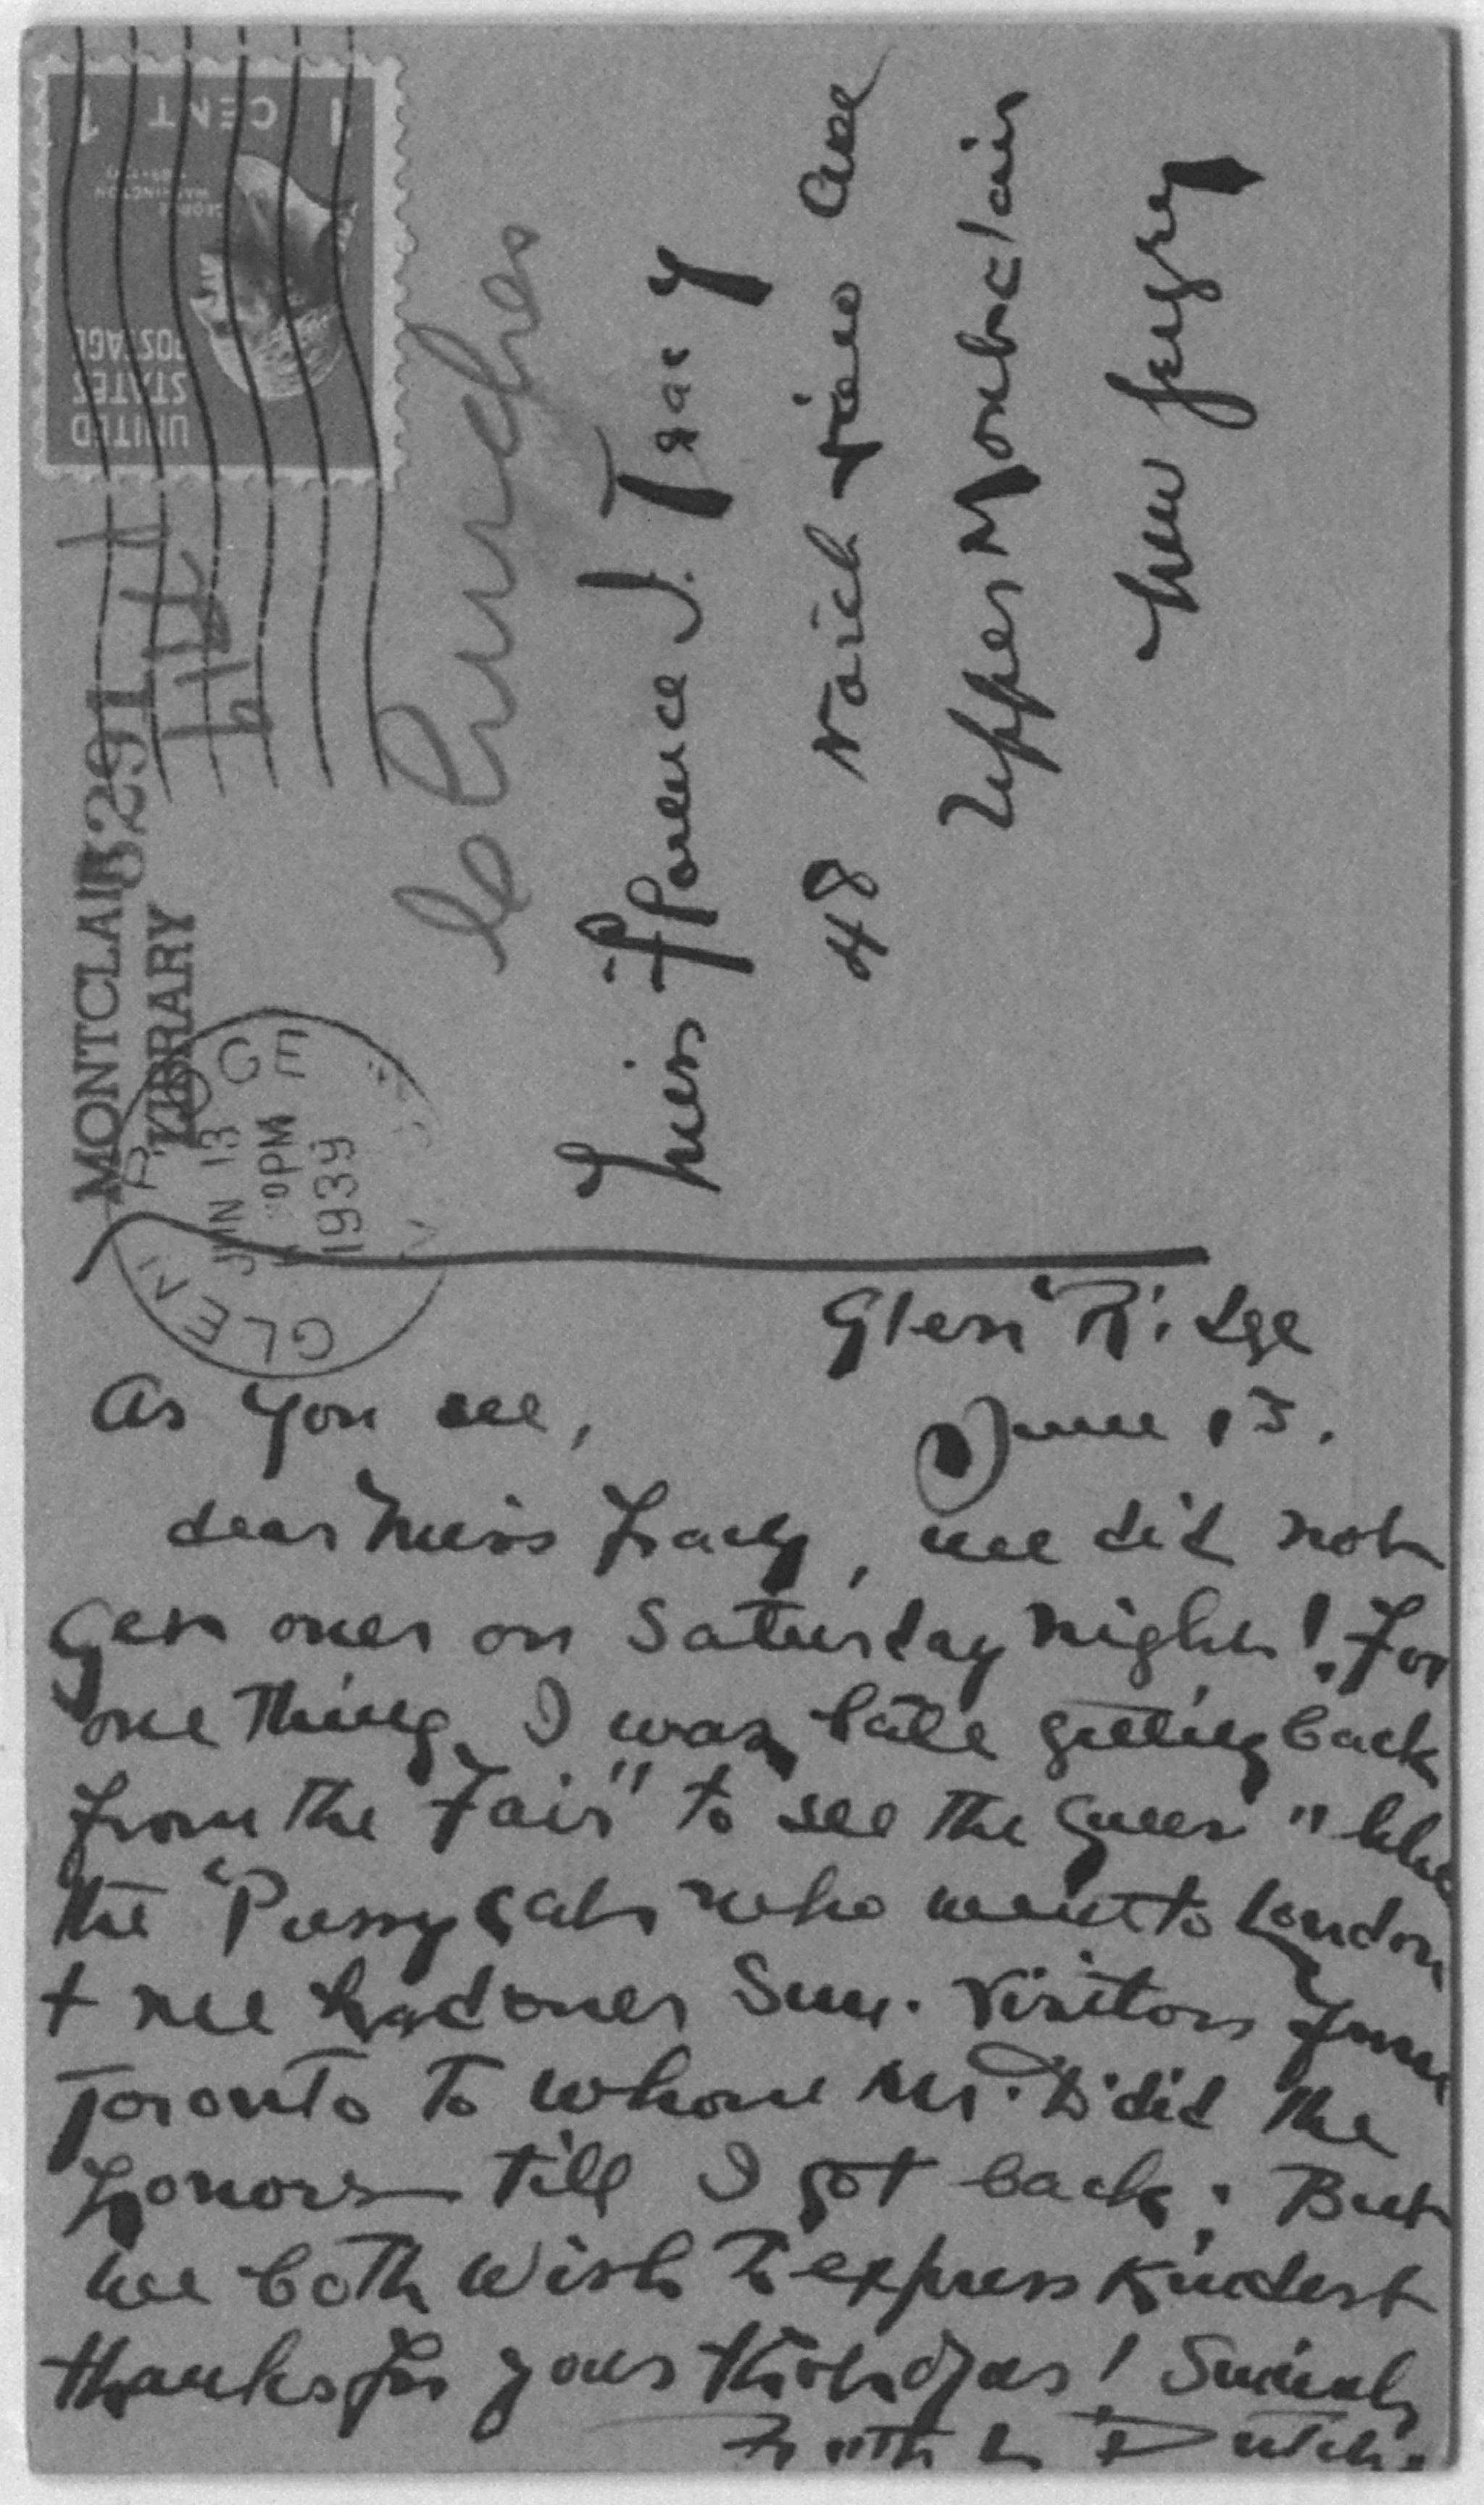 UNITED
STATES
POSTAGE
GEORGE
WASHINGTON
1 CENT 1
MONTCLAIR
LIBRARY
3291
GLEN RIDGE
JUN 13
PM
1939
N
Churches
Miss Florence J. Tracy
48 North View Ave
Upper Montclair
New Jersey
Glen Ridge
As you see, June 13.
dear Miss Tracy, we did not
get over on Saturday night! For
one thing, I was late getting back
from the Fair "to see the Queen" like
the Pussy cats who went to London
+ we had over Sun. visitors from
Toronto to whom Mr. D did the
honors till I got back; But
we both wish to express kindest
thanks for your thought of us! Sincerely
Ruth Dutch.